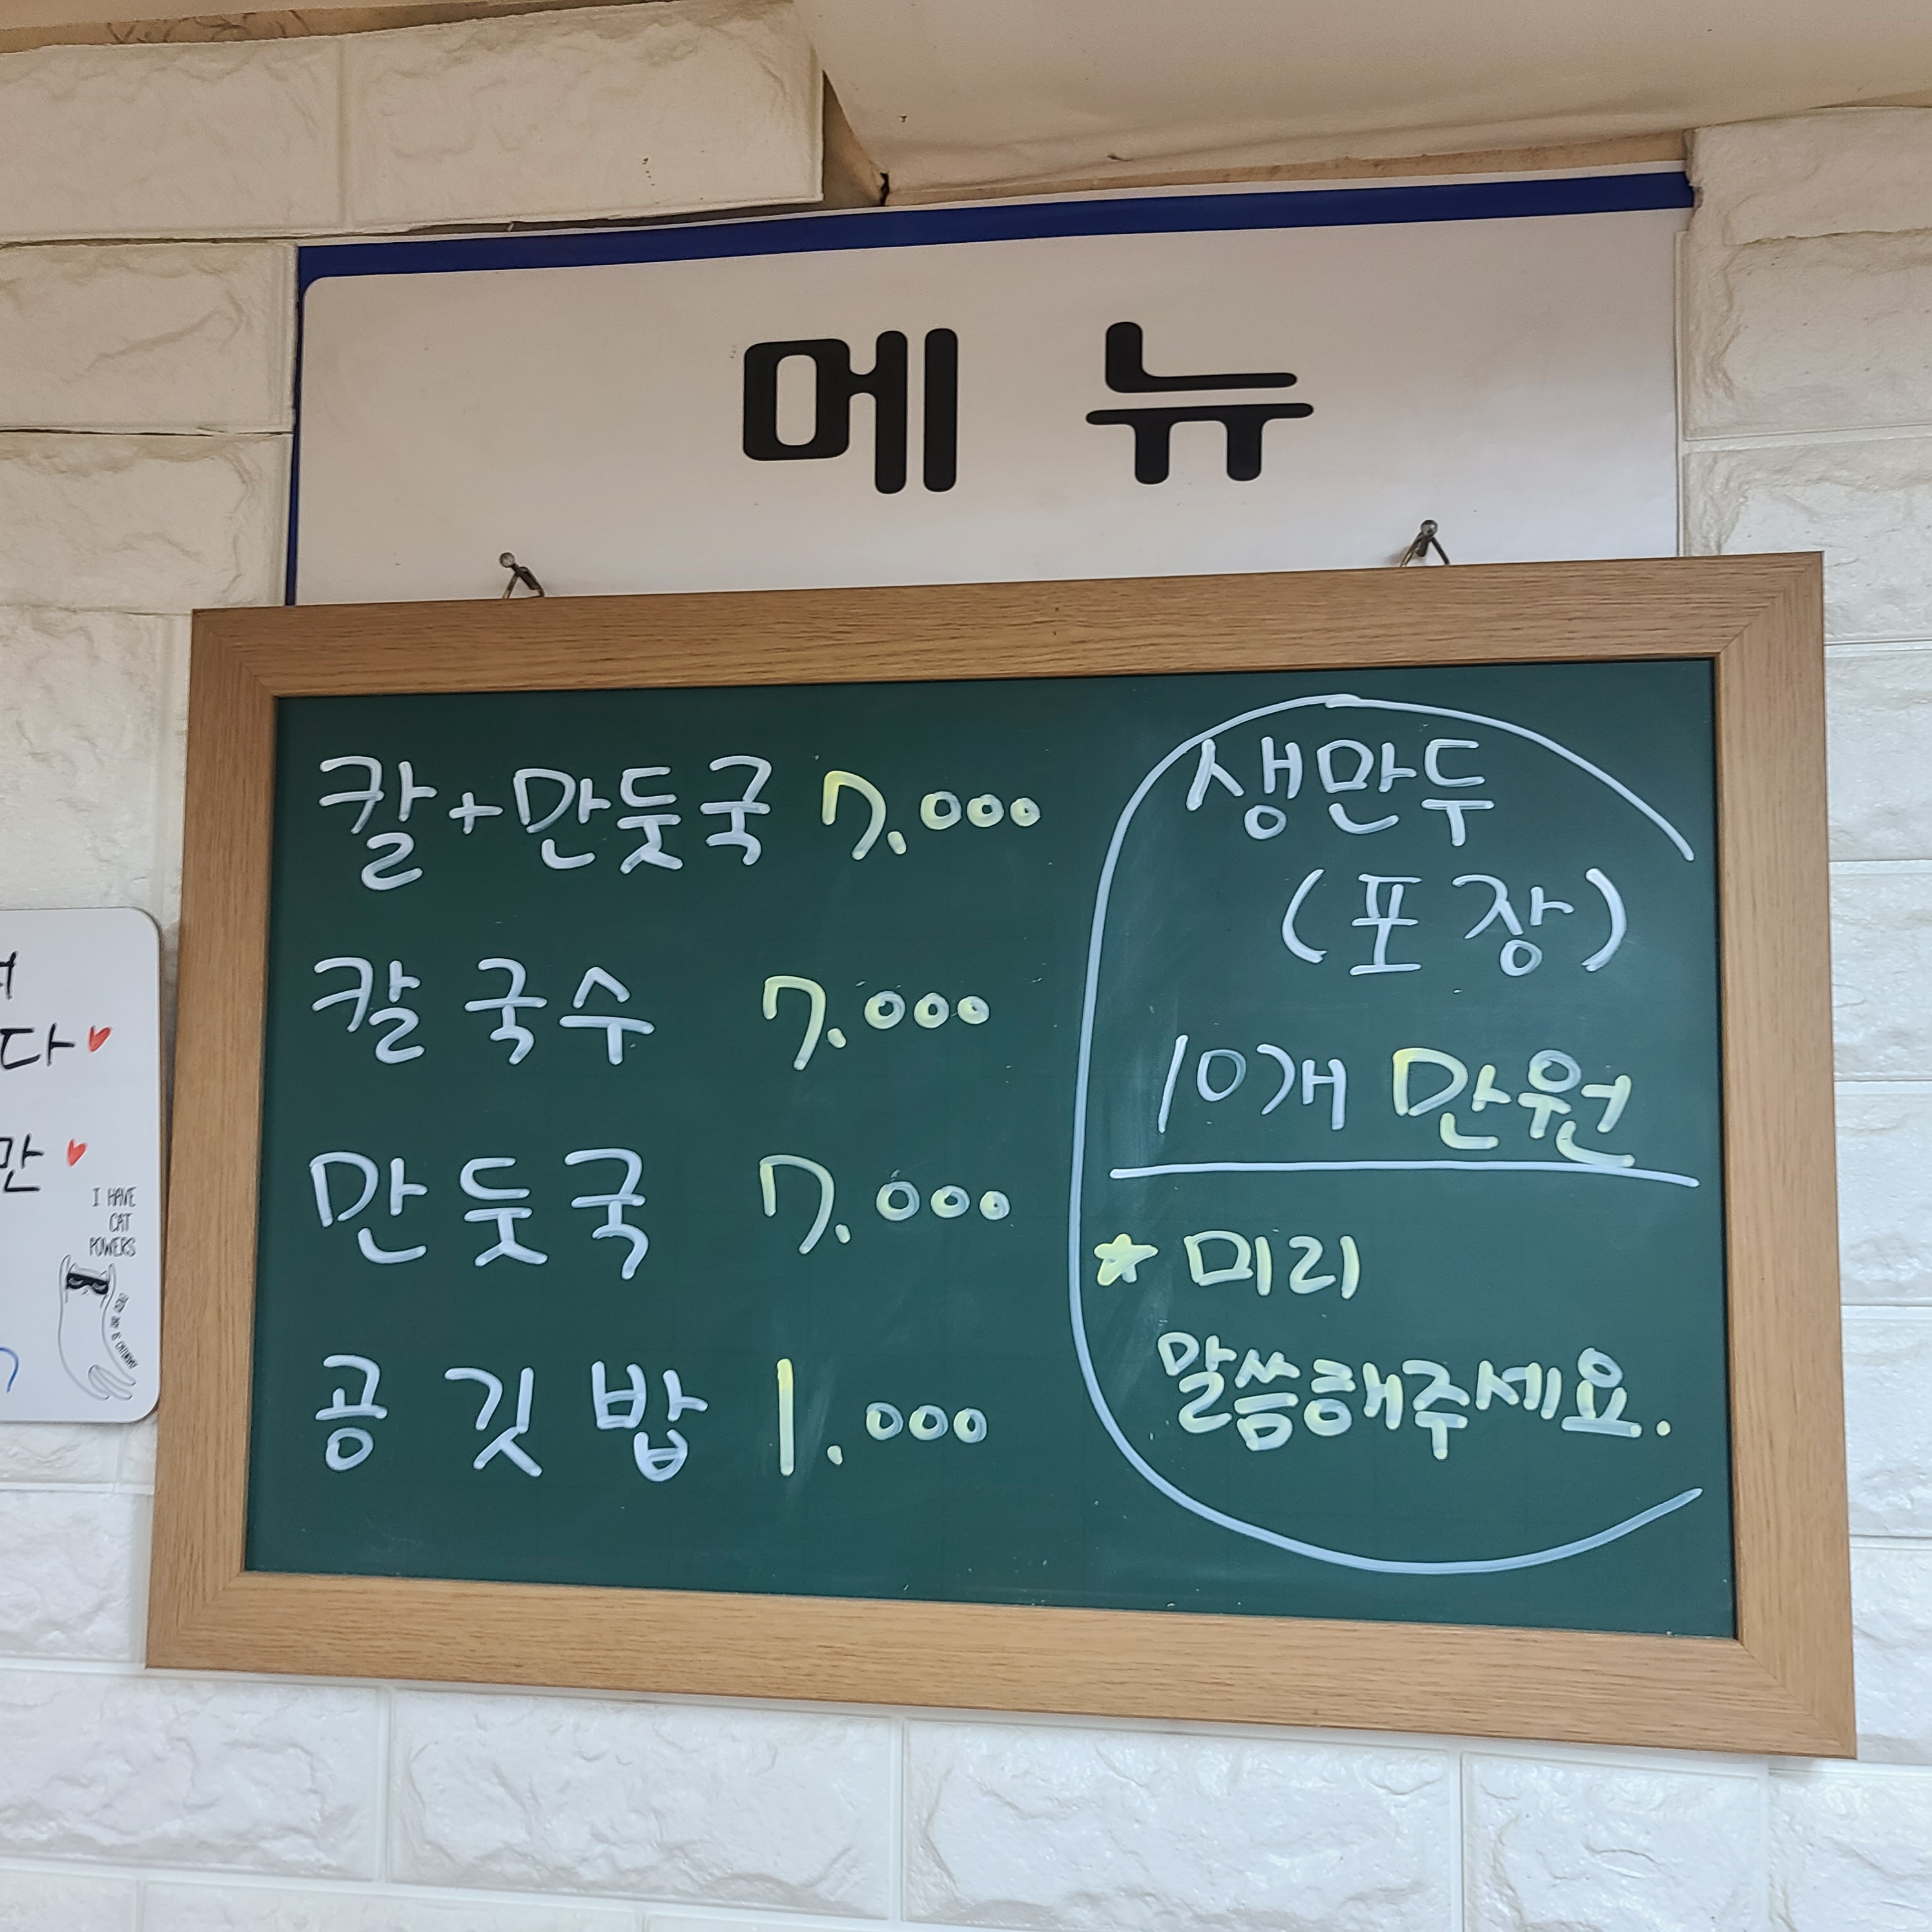 메뉴
칼+만둣국 7.000
칼국수 7.000
만둣국 7.000
공깃밥 1.000
생만두
(포장)
10개 만원
☆ 미리
말씀해주세요.
다♥
만 ♥
I HAVE
CAT
POWERS